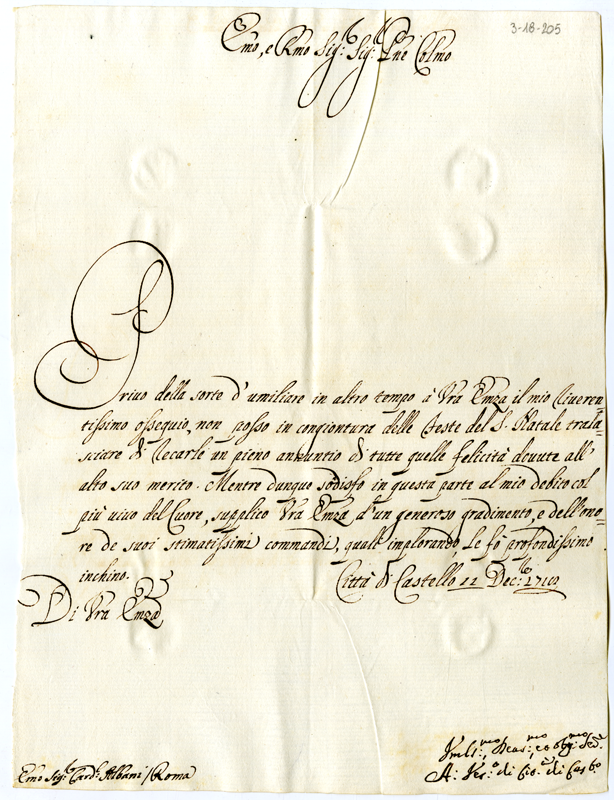 3-18-205
Emo, e Rmo Sig:r Sig:r Pne Colmo
Privo della sorte d'umiliare in altro tempo à Vra Emza il mio Riveren=
tissimo ossequio, non posso in congiontura delle Feste del S. Natale trala=
sciare di Recarle un pieno annuntio di tutte quelle felicità dovute all'
alto suo merito. Mentre dunque sodisfo in questa parte al mio debito col
più vivo del Cuore, supplico Vra Emza d'un generoso gradimento, e dell'ono=
re de suoi stimatissimi commandi, quali implorando, Le fò profondissimo
inchino.
Città di Castello 12 Dec:bre 1710
Di Vra Emza
Emo Sig:r Card:l Albani / Roma
Umil:mo Dev:mo et Obb:mo Ser:
A: Ves:o di Cit:à di Cas:o